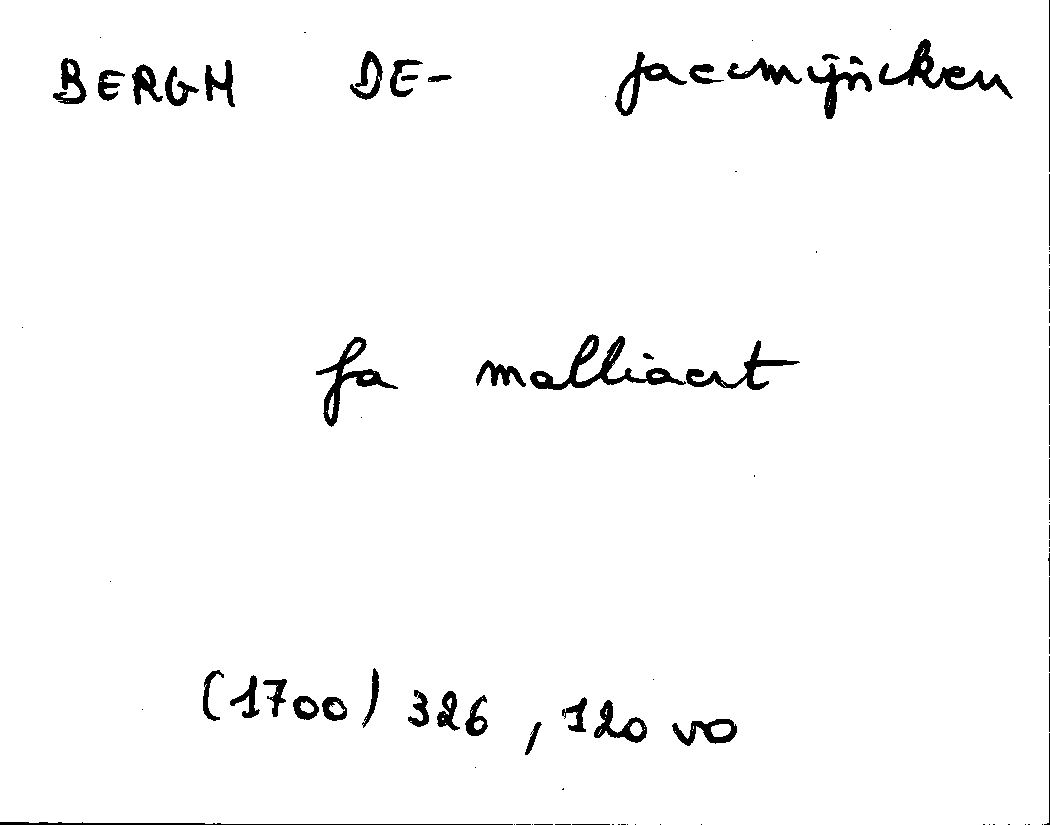 BERGH DE- Jaecmijncken
fa malliaert
(1700) 326, 120 vo